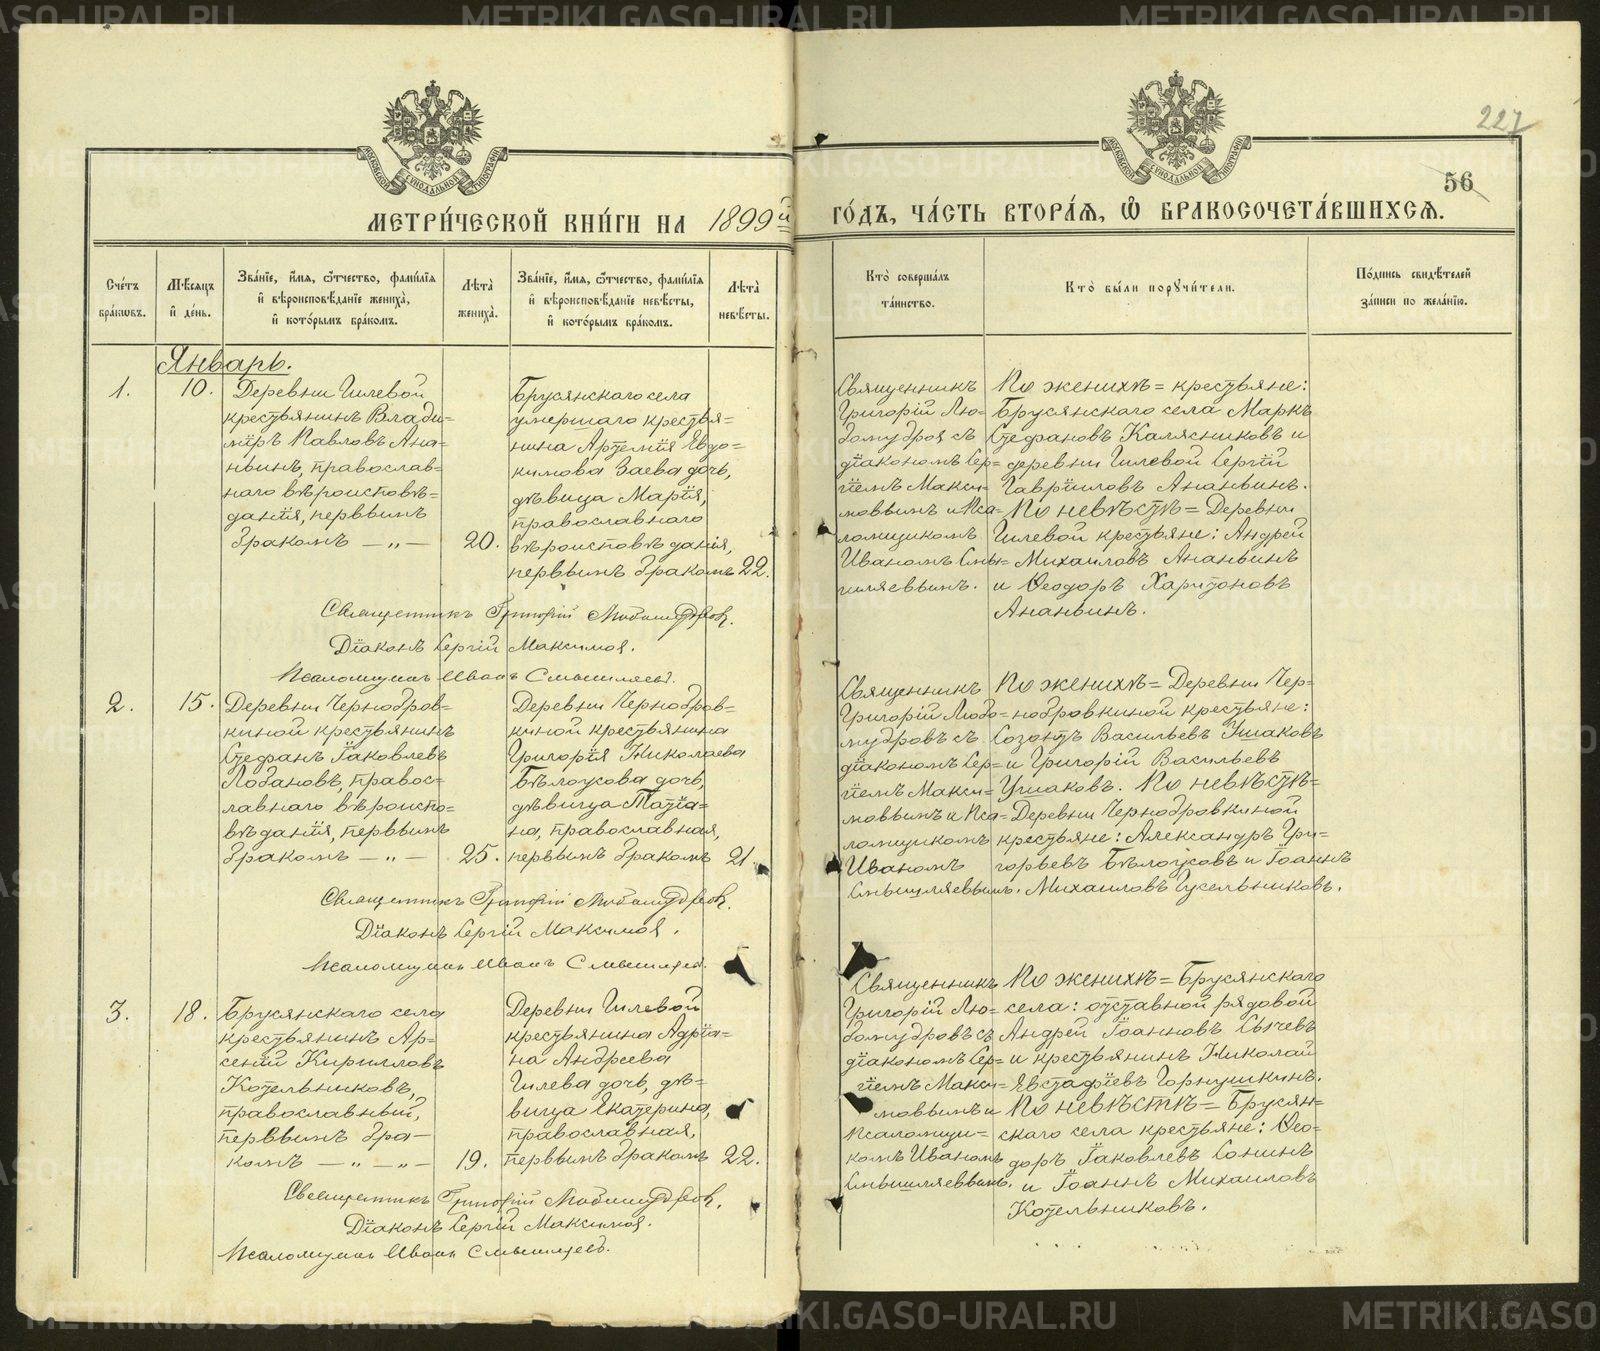 227
56
МЕТРИ́ЧЕСКОЙ КНИ́ГИ НА 1899й
ГО́ДЪ, ЧА́СТЬ ВТОРА́Я, Ѽ БРАКОСОЧЕТА́ВШИХСЯ.
Сче́тъ
бра́кѡвъ.
Мѣсяцъ
и́ де́нь.
Зва́нїе, и́мя, ѻ҆́тчество, фами́лїя
и́ вѣроисповѣ́данїе жениха̀,
и́ кото́рымъ бра́комъ.
Лѣта̀
жениха̀.
Зва́нїе, и́мя, ѻ҆́тчество, фами́лїя
и́ вѣроисповѣ́данїе невѣ́сты,
и́ кото́рымъ бра́комъ.
Лѣта̀
невѣ́сты.
Кто̀ соверша́лъ
та́инство.
Кто̀ бы́ли поручи́тели.
По́дпись свидѣ́телей
за́писи по жела́нїю.
Январь.
1.
10.
Деревни Гилевой
крестьянинъ Влади=
мїръ Павловъ Ана=
ньинъ, православ=
наго вѣроисповѣ=
данія, первымъ
бракомъ — „ —
20.
Брусянскаго села
умершаго крестья=
нина Артемія Евдо=
кимова Заева дочь,
дѣвица Марія,
православнаго
вѣроисповѣданія,
первымъ бракомъ
22.
Священникъ
Григорій Лю=
бомудровъ съ
діакономъ Сер=
гіемъ Макси=
мовымъ и Пса=
ломщикомъ
Иваномъ Смы=
шляевымъ.
По женихѣ = крестьяне:
Брусянскаго села Маркъ
Стефановъ Калясниковъ и
деревни Гилевой Сергій
Гавріиловъ Ананьинъ.
По невѣстѣ = Деревни
Гилевой крестьяне: Андрей
Михаиловъ Ананьинъ
и Ѳеодоръ Харитоновъ
Ананьинъ.
Священникъ Григорій Любомудровъ.
Діаконъ Сергій Максимов.
Псаломщикъ Иванъ Смышляевъ.
2.
15.
Деревни Чернобров=
киной крестьянинъ
Стефанъ Іаковлевъ
Лобановъ, правос=
лавнаго вѣроиспо=
вѣданія, первымъ
бракомъ — „ —
25.
Деревни Чернобров=
киной крестьянина
Григорія Николаева
Бѣлоусова дочь,
дѣвица Татіа=
на, православная,
первымъ бракомъ
21.
Священникъ
Григорій Любо=
мудровъ съ
діакономъ Сер=
гіемъ Макси=
мовымъ и Пса=
ломщикомъ
Иваномъ
Смышляевымъ.
По женихѣ = Деревни Чер=
нобровкиной крестьяне:
Созонтъ Васильевъ Ушаковъ
и Григорій Васильевъ
Ушаковъ. По невѣстѣ=
Деревни Чернобровкиной
крестьяне: Александръ Гри=
горьевъ Бѣлоусовъ и Іоаннъ
Михаиловъ Гусельниковъ.
Священникъ Григорій Любомудровъ.
Діаконъ Сергій Максимов.
Псаломщикъ Иванъ Смышляевъ.
3.
18.
Брусянскаго села
крестьянинъ Ар=
сеній Кирилловъ
Котельниковъ,
православный,
первымъ бра—
комъ — „ — „ —
19.
Деревни Гилевой
крестьянина Адріа=
на Андреева
Гилева дочь, дѣ=
вица Екатерина,
православная,
первымъ бракомъ
22.
Священникъ
Григорій Лю=
бомудровъ съ
діакономъ Сер=
гіемъ Макси=
мовымъ и
псаломщи=
комъ Иваномъ
Смышляевымъ.
По женихѣ = Брусянскаго
села: отставной рядовой
Андрей Іоанновъ Сычевъ
и крестьянинъ Николай
Евстафіевъ Горнушкинъ.
По невѣстѣ = Брусян=
скаго села крестьяне: Ѳео=
доръ Іаковлевъ Сонинъ
и Іоаннъ Михаиловъ
Котельниковъ.
Священникъ Григорій Любомудровъ.
Діаконъ Сергій Максимов.
Псаломщикъ Иванъ Смышляевъ.
METRIKI.GASO-URAL.RU